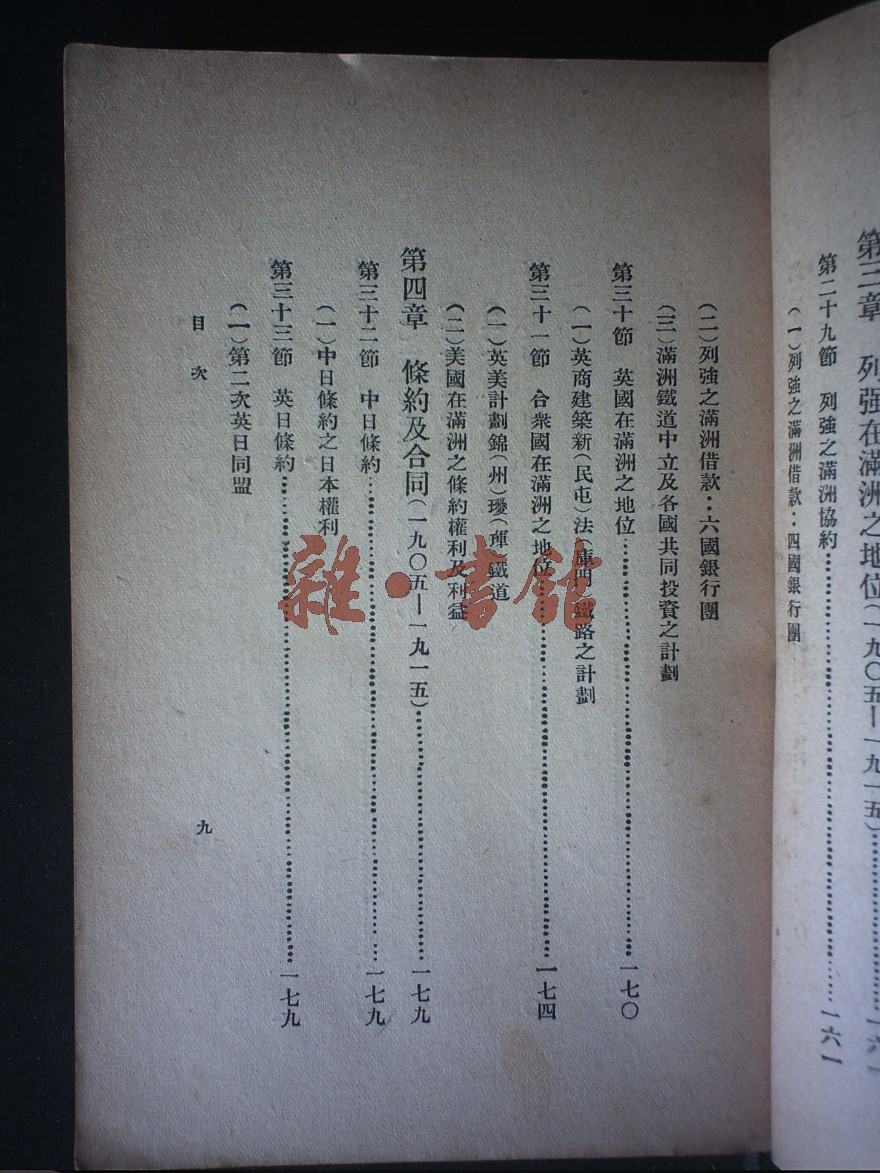 第三章　列强在滿洲之地位(一九〇五—一九一五)…………一六一
第二十九節　列強之滿洲協約…………一六一
(一)列強之滿洲借款：四國銀行團
(二)列強之滿洲借款：六國銀行團
(三)滿洲鐵道中立及各國共同投資之計劃
第三十節　英國在滿洲之地位…………一七〇
(一)英商建築新(民屯)法(庫門)鐵路之計劃
第三十一節　合衆國在滿洲之地位…………一七四
(一)英美計劃錦(州)璦(琿)鐵道
(二)美國在滿洲之條約權利及利益
第四章　條約及合同(一九〇五—一九一五)…………一七九
第三十二節　中日條約…………一七九
(一)中日條約之日本權利
第三十三節　英日條約…………一七九
(一)第二次英日同盟
目次
九
雜·書館